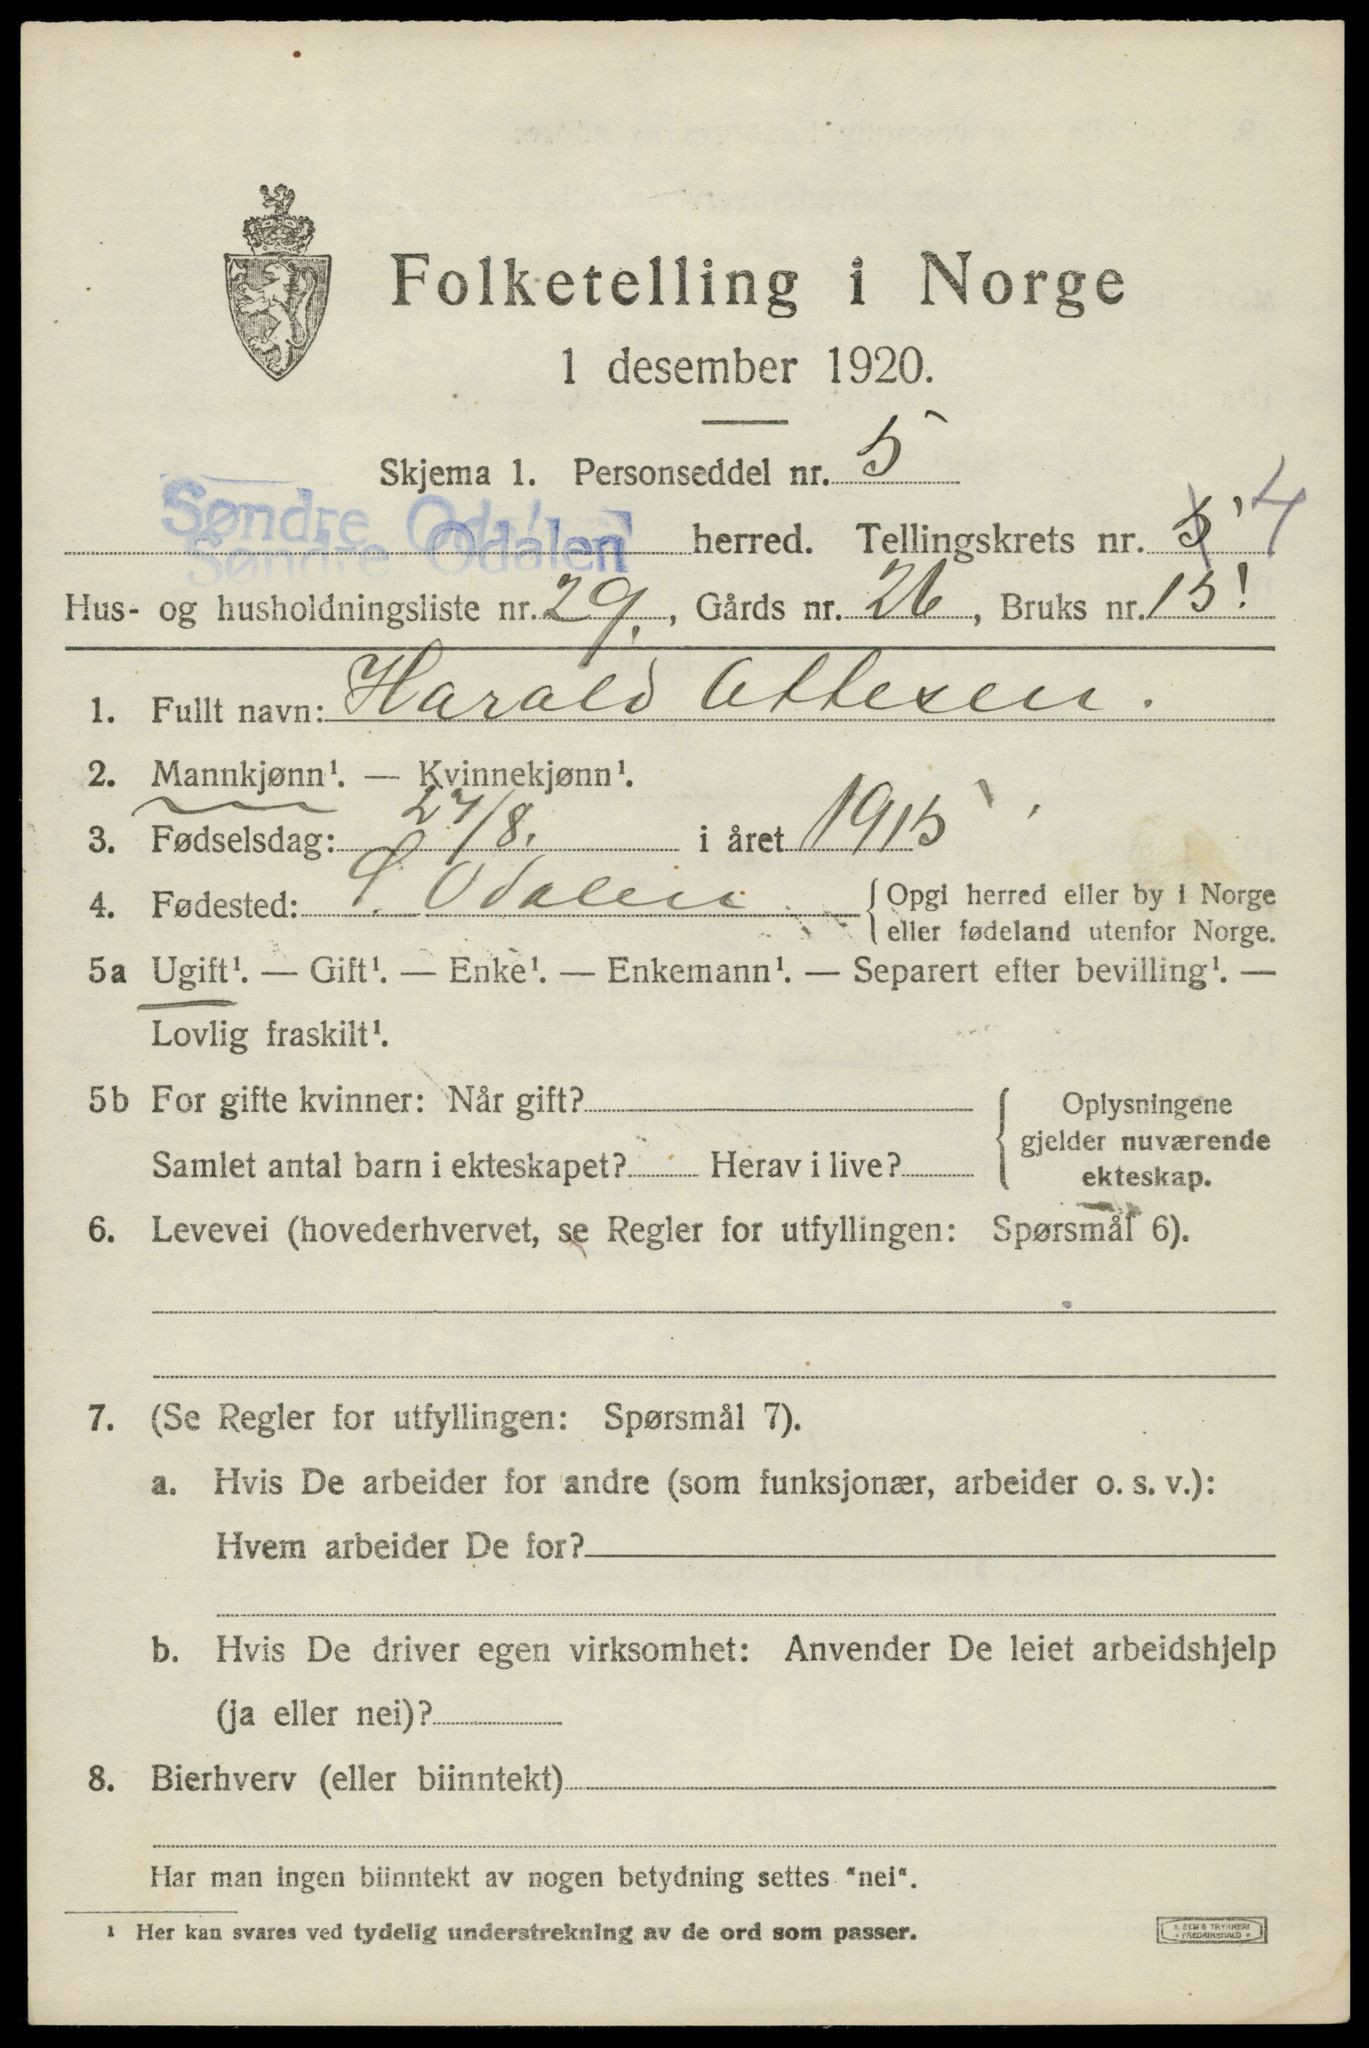 Folketelling i Norge
1 desember 1920.
Skjema 1. Personseddel nr. 5
Søndre Odalen herred. Tellingskrets nr. 5 4
Søndre Odalen
Hus- og husholdningsliste nr. 29., Gårds nr. 26, Bruks nr. 15!
1. Fullt navn: Harald Ottesen.
2. Mannkjønn¹. — Kvinnekjønn¹.
3. Fødselsdag: 27/8. i året 1915
4. Fødested: S. Odalen { Opgi herred eller by i Norge
eller fødeland utenfor Norge.
5a Ugift¹. — Gift¹. — Enke¹. — Enkemann¹. — Separert efter bevilling¹. —
Lovlig fraskilt¹.
5b For gifte kvinner: Når gift? { Oplysningene
gjelder nuværende
Samlet antal barn i ekteskapet? Herav i live?
ekteskap.
6. Levevei (hovederhvervet, se Regler for utfyllingen: Spørsmål 6).
7. (Se Regler for utfyllingen: Spørsmål 7).
a. Hvis De arbeider for andre (som funksjonær, arbeider o. s. v.):
Hvem arbeider De for?
b. Hvis De driver egen virksomhet: Anvender De leiet arbeidshjelp
(ja eller nei)?
8. Bierhverv (eller biinntekt)
Har man ingen biinntekt av nogen betydning settes "nei".
¹ Her kan svares ved tydelig understrekning av de ord som passer.
E. SEM'S TRYKKERI
FREDRIKSHALD